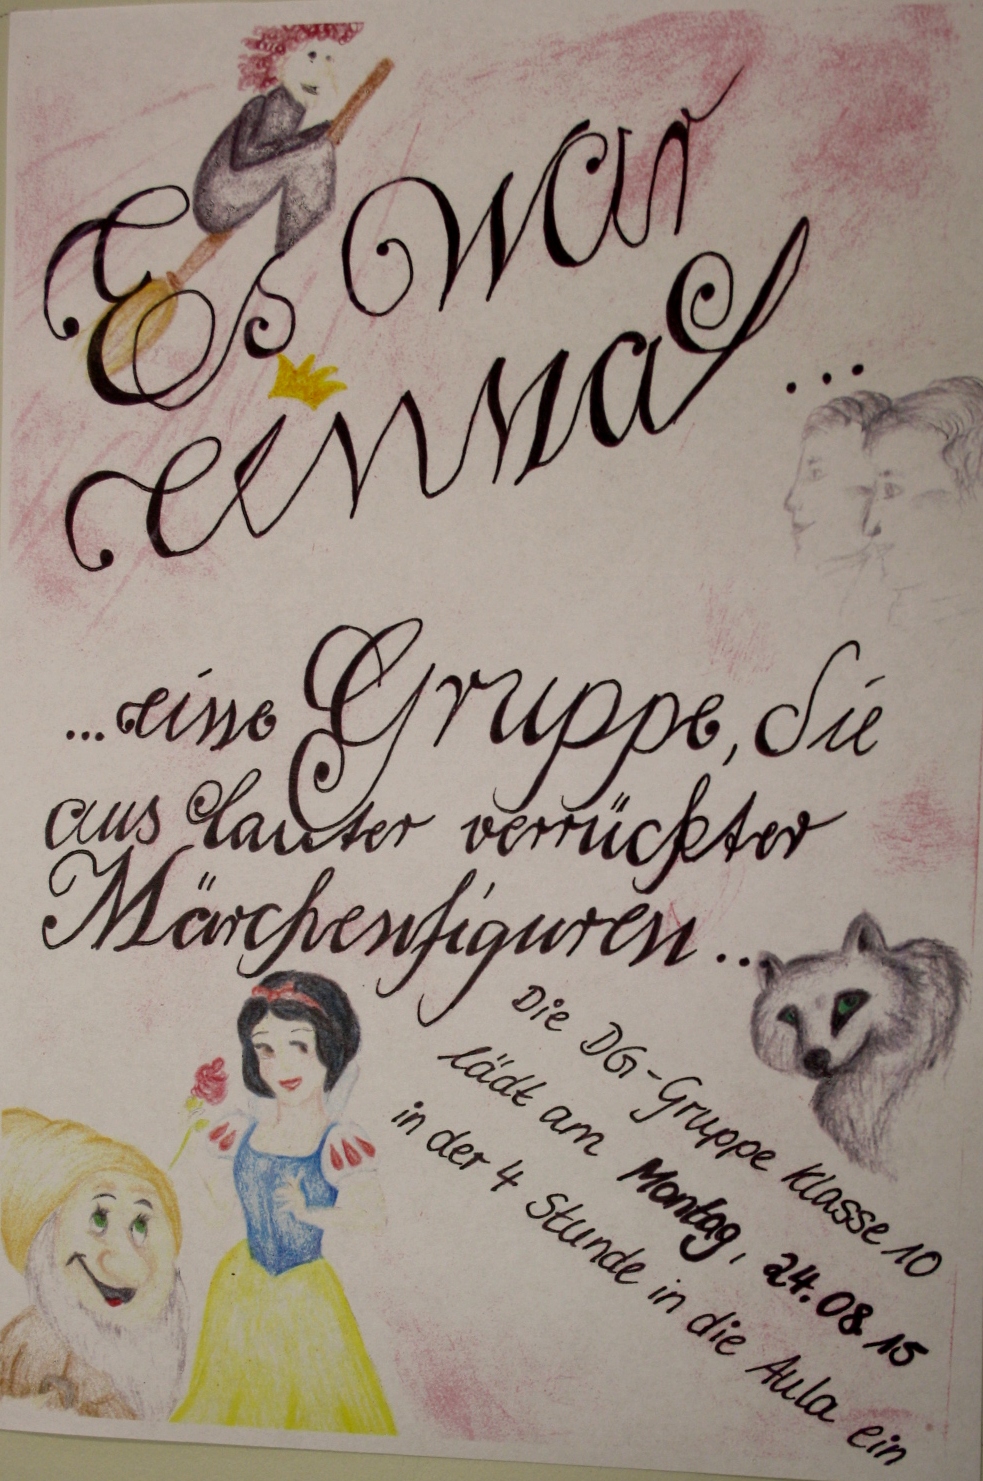 Es war
einmal ...
... eine Gruppe, die
aus lauter verrückter
Märchenfiguren ...
Die DG-Gruppe Klasse 10
lädt am Montag, 24.08.15
in der 4 Stunde in die Aula ein